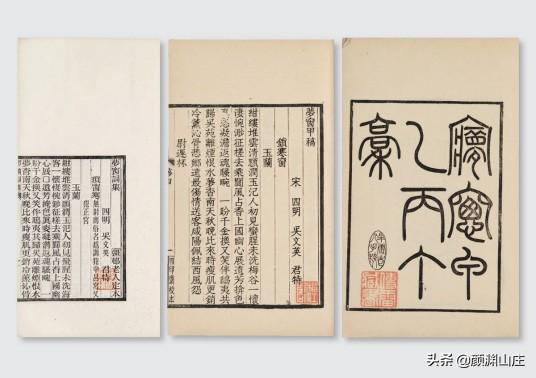 夢窗甲
乙丙丁
稾
夢窗甲稿
宋 四明 吳文英 君特
鎖寒窗
玉蘭
紺縷堆雲清顋潤玉汜人初見蠻腥未洗梅谷一懷
淒惋渺征槎去乘閬風占香上國幽心展遺芳掩色
真恣凝澹返魂騷畹 一盼千金換又笑伴鴟夷共
歸吳苑離煙恨水夢杳南天秋晚比來時瘦肌更銷
冷薰沁骨悲鄉遠最傷情送客咸陽佩結西風怨
尉遲杯
夢窗詞集
四明 吳文英 君特
老人定本
瑣窗寒
玉蘭
紺縷堆雲清顋潤玉汜人初見蠻腥未洗海
客一懷悽惋渺征槎去乘閬風占香上國幽
心展遺芳掩色真恣凝澹返魂騷畹 一
盼千金換又笑伴鴟夷共歸吳苑離煙恨水
夢杳南天秋晚比來時瘦肌更銷冷薰沁骨
头条 @颜渊山庄